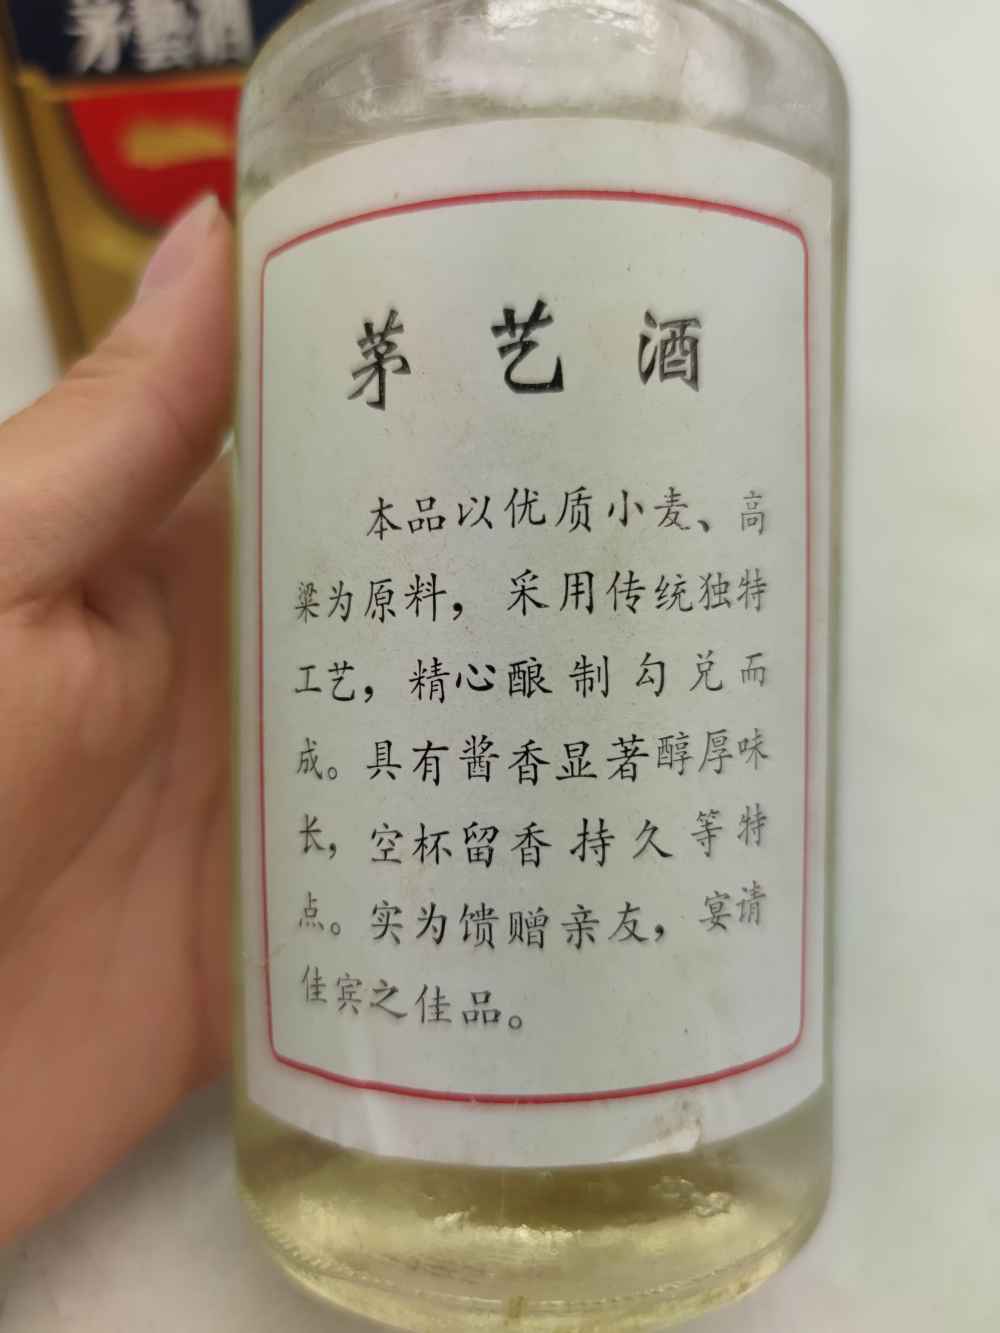 茅藝酒
茅艺酒
本品以优质小麦、高
粱为原料，采用传统独特
工艺，精心酿制勾兑而
成。具有酱香显著醇厚味
长，空杯留香持久等特
点。实为馈赠亲友，宴请
佳宾之佳品。